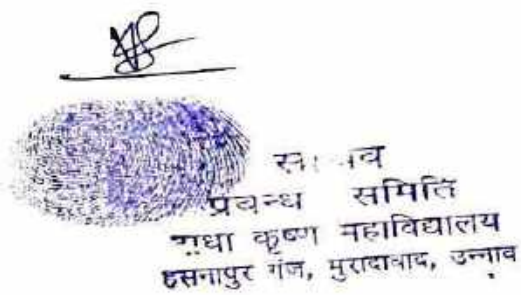 प्रबन्ध समिति
राधा कृष्ण महाविद्यालय
हसनापुर गंज, मुरादाबाद, उन्नाव